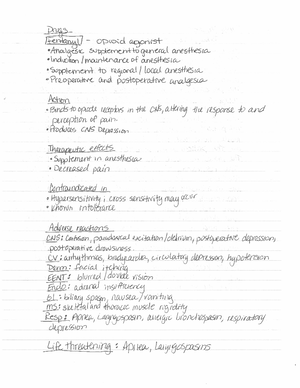 Drugs
Fentanyl - opioid agonist
• Analgesic supplement to general anesthesia
• Induction/maintenance of anesthesia
• Supplement to regional/local anesthesia
• Preoperative and postoperative analgesia
Action
• Binds to opiate receptors in the CNS, altering the response to and
perception of pain
• Produces CNS Depression
Therapeutic effects
• Supplement in anesthesia
• Decreased pain
Contraindicated in
• Hypersensitivity; cross sensitivity may occur
• Known intolerance
Adverse reactions
CNS: confusion, paradoxical excitation/delirium, postoperative depression,
postoperative drowsiness
CV: arrhythmias, bradycardia, circulatory depression, hypotension
Derm: facial itching
EENT: blurred/double vision
Endo: adrenal insufficiency
GI: biliary spasm, nausea/vomiting
MS: skeletal and thoracic muscle rigidity
Resp: Apnea, Laryngospasm, allergic bronchospasm, respiratory
depression
Life threatening: Apnea, Laryngospasms